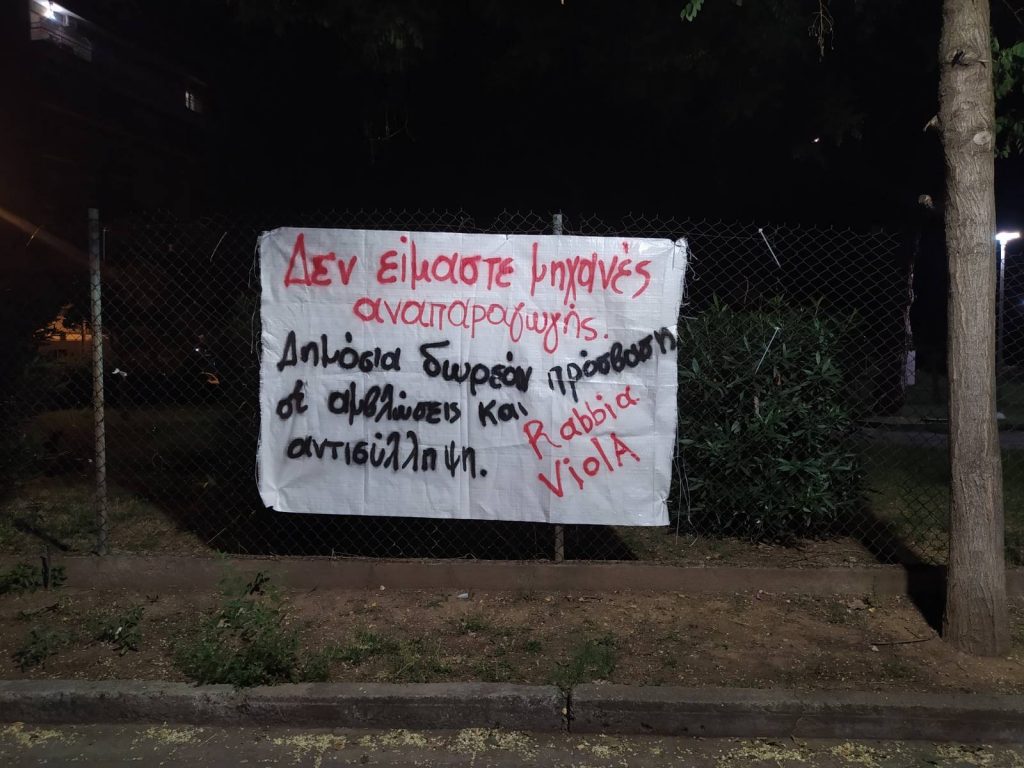 Δεν είμαστε μηχανές
αναπαραγωγής.
Δημόσια δωρεάν πρόσβαση
σε αμβλώσεις και
αντισύλληψη.
Rabbia
ViolA